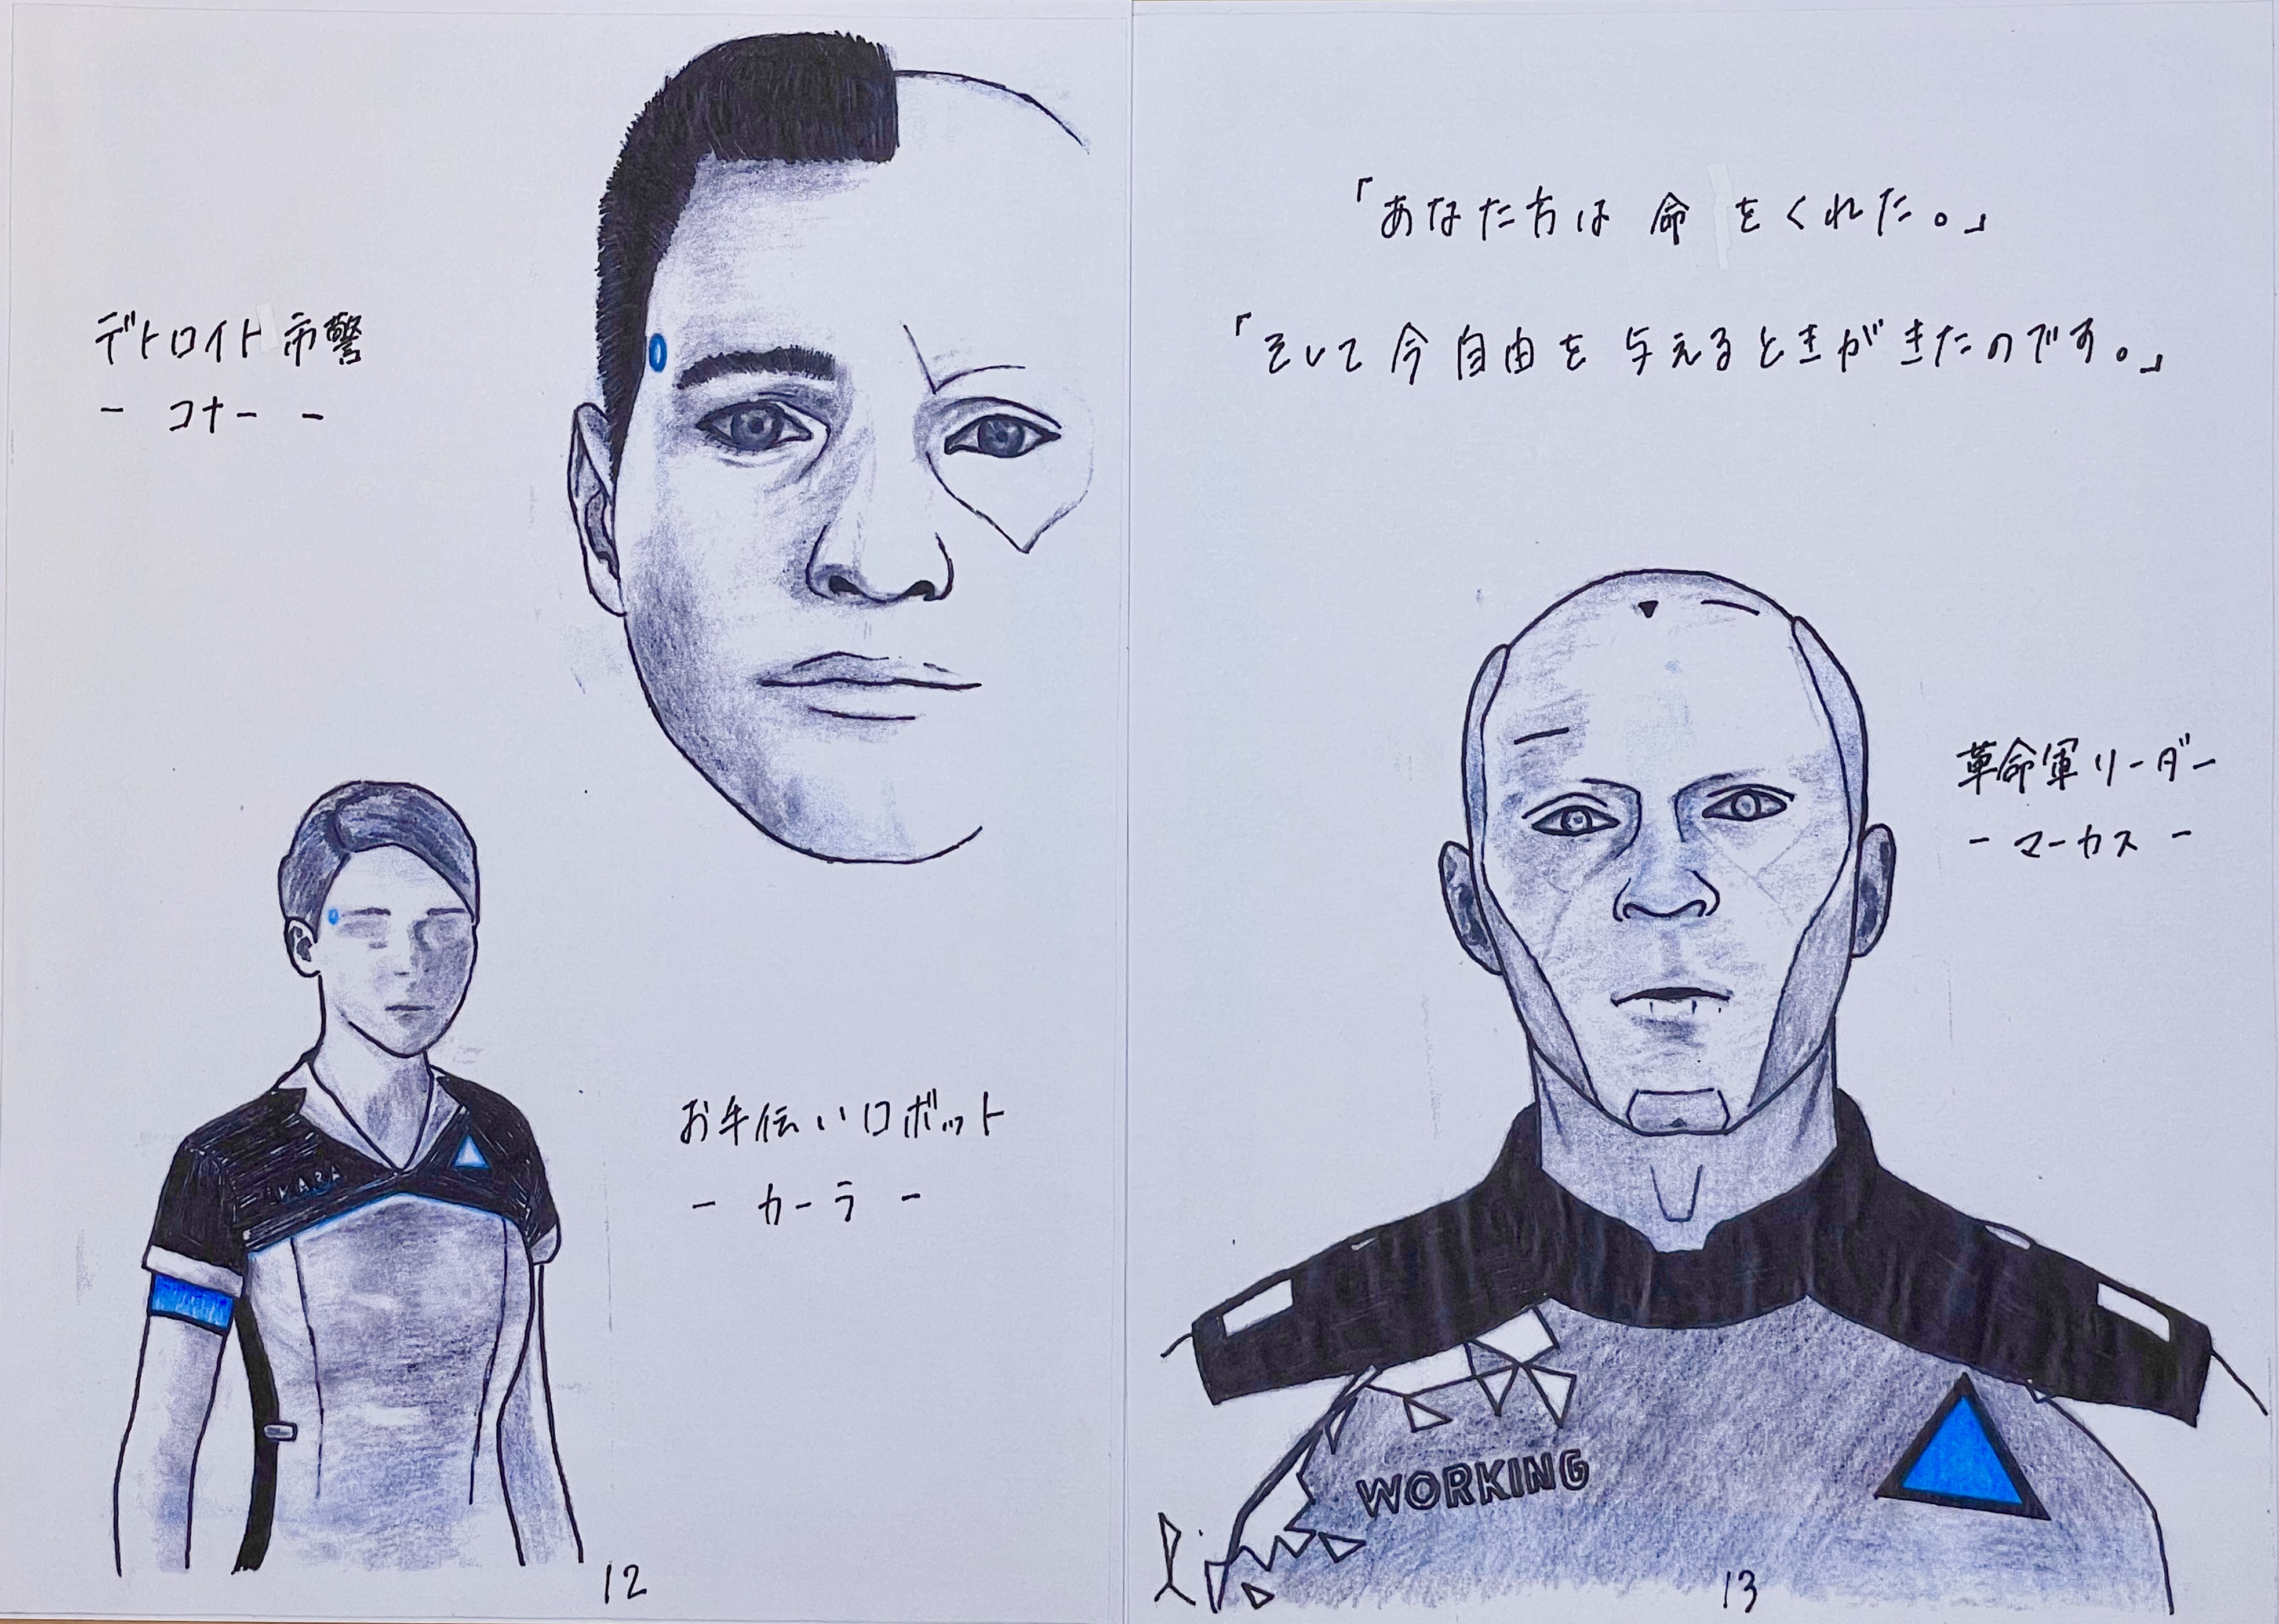 デトロイト市警
- コナー -
お手伝いロボット
- カーラ -
KARA
12
「あなた方は 命 をくれた。」
「そして今自由を与えるときがきたのです。」
革命軍リーダー
- マーカス -
WORKING
13